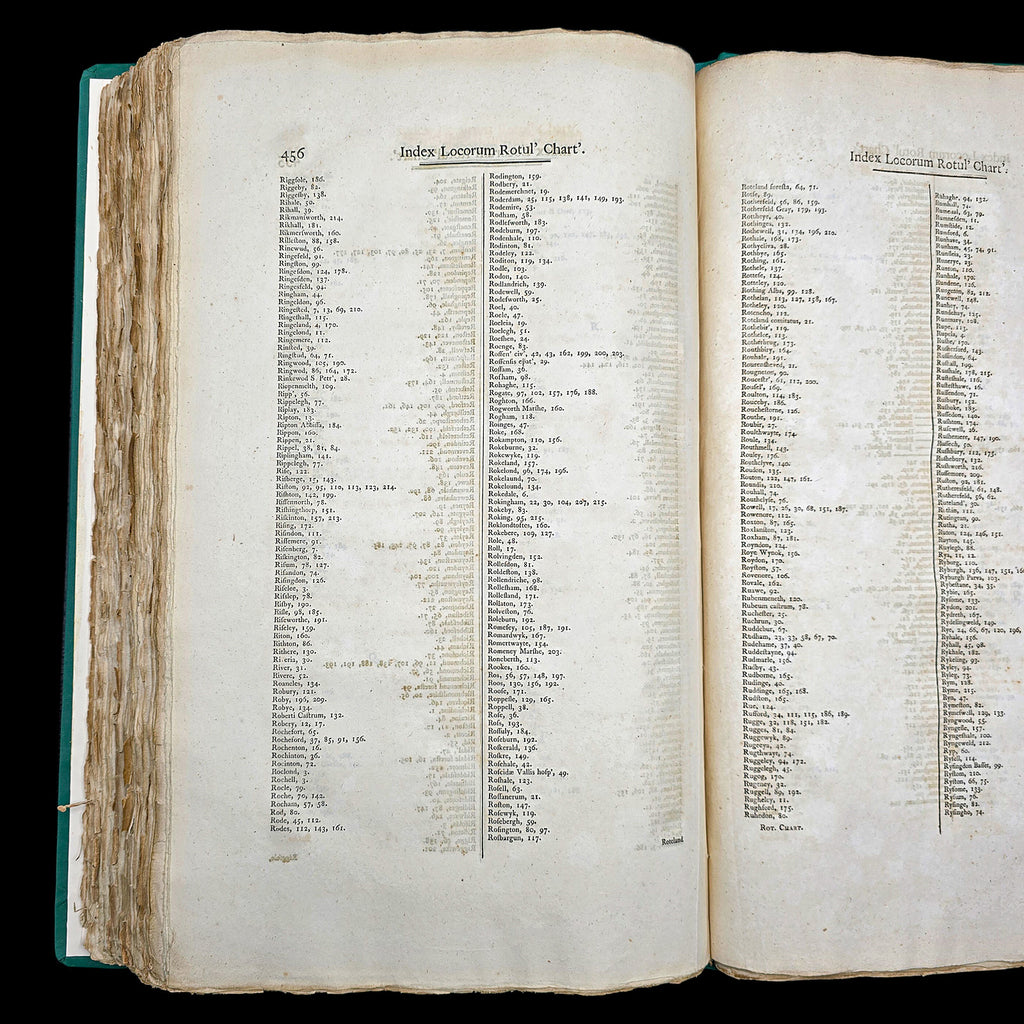 456
Index Locorum Rotul' Chart'.
Riggſole, 186.
Riggeby, 82.
Riggeſby, 138.
Rihale, 50.
Rihall, 39.
Rikmaniworth, 214.
Rikhall, 181.
Rikmerſworth, 160.
Rilleſton, 88, 158.
Rinewud, 56.
Ringefeld, 91.
Ringſton, 99.
Ringeſdon, 124, 178.
Ringeſden, 137.
Ringesfeld, 94.
Ringham, 44.
Ringeldon, 96.
Ringeſted, 7, 13, 69, 210.
Ringeſhall, 115.
Ringeland, 4, 170.
Ringelond, 11.
Ringemere, 112.
Rinſted, 39.
Ringſtud, 64, 71.
Ringwood, 105, 190.
Ringwod, 86, 164, 172.
Rinkewod S. Petr', 28.
Riopenmeith, 109.
Ripp', 56.
Rippelegh, 77.
Riplay, 183.
Ripton, 13.
Ripton Abbiſſa, 184.
Rippon, 160.
Rippen, 21.
Rippel, 38, 81, 84.
Riplingham, 141.
Rippelegh, 77.
Riſe, 122.
Riſberge, 15, 143.
Riſton, 92, 95, 110, 113, 123, 214.
Riſhton, 142, 199.
Riſſennorth, 78.
Riſhingthorp, 151.
Riſkinton, 157, 213.
Riſing, 172.
Riſindon, 111.
Riſſemere, 91.
Riſenberg, 7.
Riſkington, 82.
Riſum, 78, 127.
Riſandon, 74.
Riſingdon, 126.
Riſelee, 3.
Riſſlep, 78.
Riſby, 190.
Riſle, 98, 185.
Riſeworthe, 191.
Riſeley, 159.
Riton, 160.
Rithton, 86.
Rithere, 130.
Riveria, 30.
River, 31.
Rivere, 52.
Roancles, 134.
Robury, 121.
Roby, 196, 209.
Robye, 134.
Roberti Caſtrum, 132.
Robery, 12, 17.
Rochefort, 65.
Rocheford, 37, 85, 91, 156.
Rochenton, 16.
Rochinton, 36.
Rocinton, 72.
Roclond, 3.
Rochell, 3.
Rocle, 79.
Roche, 70, 142.
Rocham, 57, 58.
Rod, 80.
Rode, 45, 112.
Rodes, 112, 143, 161.
Rodington, 159.
Rodbery, 21.
Rodemerchnet, 19.
Roderdam, 25, 115, 138, 141, 149, 193.
Rodenire, 53.
Rodham, 58.
Rodleſworth, 183.
Rodeburn, 197.
Rodenhale, 110.
Rodinton, 81.
Rodeley, 122.
Roditon, 119, 134.
Rodle, 103.
Rodon, 140.
Rodlandrich, 139.
Rodewell, 59.
Rodeſworth, 25.
Roel, 40.
Roele, 47.
Roeleia, 19.
Roelegh, 51.
Roeſhen, 24.
Roenge, 83.
Roffen' civ', 42, 43, 162, 199, 200, 203.
Roffenſis epat', 29.
Roffam, 36.
Rofham, 98.
Rohaghe, 115.
Rogate, 97, 102, 157, 176, 188.
Roghton, 166.
Rogworth Marſhe, 160.
Rogham, 118.
Roinges, 47.
Roke, 168.
Rokampton, 110, 156.
Rokeburne, 32.
Rokewyke, 119.
Rokeland, 157.
Rokelond, 96, 174, 196.
Rokelaund, 70.
Rokelound, 134.
Rokedale, 6.
Rokingham, 22, 30, 104, 207, 215.
Rokeby, 83.
Roking, 95, 215.
Roklondtoftes, 160.
Rokebere, 109, 127.
Role, 48.
Roll, 17.
Rolvingden, 152.
Rolleſdon, 81.
Roldeſton, 138.
Rollendriche, 98.
Rolleſham, 168.
Rolleſtand, 171.
Rollaton, 173.
Rolveſton, 76.
Roleburn, 192.
Romeſey, 105, 187, 191.
Romardwyk, 167.
Romertwayte, 154.
Romeney Marſhe, 203.
Roncberth, 113.
Rookes, 160.
Ros, 56, 57, 148, 197.
Roos, 130, 156, 192.
Rooſe, 171.
Roppeſle, 129, 165.
Roppell, 38.
Roſe, 36.
Roſs, 193.
Roſſuly, 184.
Roſeburn, 192.
Roſkerald, 136.
Roſkre, 149.
Roſehale, 42.
Roſcidæ Vallis hoſp', 49.
Roſhale, 123.
Roſell, 63.
Roſſanerum, 21.
Roſton, 147.
Roſewyk, 119.
Roſebergh, 59.
Roſington, 80, 97.
Roſbargun, 117.
Roteland
Index Locorum Rotul' Chart'.
Roteland foreſta, 64, 71.
Rotſe, 89.
Rotherfeld, 56, 86, 159.
Rotherfeld Gray, 179, 193.
Rottheye, 40.
Rothinges, 132.
Rothewell, 31, 174, 196, 210.
Rothale, 168, 173.
Rothyeliva, 28.
Rothbye, 165.
Rothing, 161.
Rothele, 137.
Rotteſe, 124.
Rotteley, 120.
Rothing Alba, 99, 128.
Rothelan, 113, 127, 158, 167.
Rotheley, 120.
Rotencho, 112.
Roteland comitatus, 21.
Rothebir', 119.
Rothelee, 113.
Rotherbrug, 173.
Routhbiry, 164.
Rouhale, 191.
Rouenesherd, 21.
Rougneton, 90.
Roueceſtr', 61, 112, 200.
Roufel', 169.
Roulton, 114, 185.
Rouceby, 186.
Roucheſtorne, 126.
Routhe, 191.
Roubir, 27.
Roulthwayte, 174.
Roule, 134.
Routhmell, 143.
Rouley, 176.
Routhclyve, 140.
Roudon, 135.
Routon, 122, 147, 161.
Roundis, 210.
Rouhall, 74.
Routhclyfe, 76.
Rowell, 17, 26, 30, 68, 151, 187.
Rowenore, 112.
Roxton, 87, 165.
Roxlanſton, 123.
Roxham, 87, 181.
Royndon, 124.
Royn Wynok, 150.
Roydon, 170.
Royſton, 57.
Rovenore, 106.
Rovale, 162.
Ruawe, 92.
Rubenmeneth, 120.
Rubeum caſtrum, 78.
Rucheſter, 25.
Rachrun, 30.
Ruddebur, 67.
Rudham, 23, 33, 58, 67, 70.
Rudehame, 37, 40.
Ruddeſtayne, 94.
Rudmarle, 156.
Rudby, 43.
Rudborne, 165.
Rudinge, 40.
Ruddinge, 165, 168.
Rudſton, 165.
Rue, 124.
Rufford, 34, 111, 115, 186, 189.
Rugge, 32, 118, 151, 182.
Rugges, 81, 84.
Ruggewyk, 89.
Rugeeya, 42.
Rugthwayt, 74.
Ruggeley, 94, 172.
Ruggelegh, 45.
Rugog, 170.
Rugeney, 32.
Ruggell, 89, 192.
Rugheley, 11.
Rughford, 175.
Ruhedon, 80.
Rot. Chart.
Rumhall, 74.
Rumeſul, 63, 79.
Rumneſden, 11.
Rumſtide, 12.
Rumford, 6.
Runhave, 34.
Runham, 45, 74, 91.
Runſleia, 23.
Runton, 110.
Runhale, 170.
Rundene, 126.
Rungeton, 82, 212.
Runewell, 148.
Runhey, 74.
Rundchay, 125.
Runmary, 108.
Rupe, 113.
Rupela, 4.
Ruſhe, 170.
Ruſſheford, 143.
Ruſſendon, 64.
Ruſhall, 199.
Ruſhale, 178, 215.
Ruſteſhale, 116.
Ruſteſthawe, 16.
Ruſſendon, 71.
Ruſbury, 152.
Ruſhoke, 185.
Ruſſedon, 140.
Ruſhton, 174.
Ruſſewell, 26.
Ruſhemere, 147, 190.
Ruſſech, 50.
Ruſhbury, 112, 175.
Ruſſhebury, 132.
Ruſhworth, 216.
Ruſſemore, 209.
Ruſton, 92, 181.
Rutherefeld, 61, 148.
Rutherefeld, 56, 62.
Ruteland', 30.
Ruthin, 111.
Rutington, 90.
Rutha, 21.
Ruton, 124, 146, 151.
Ruyton, 145.
Ruylegh, 88.
Rya, 11, 12.
Ryburg, 110.
Ryburgh, 136, 147, 151, 16
Ryburgh Parva, 103.
Rybeſtane, 34, 35.
Rybio, 165.
Ryſome, 133.
Rydon, 201.
Rydreth, 167.
Rydelingweld, 149.
Rye, 24, 66, 67, 120, 196,
Ryhale, 156.
Ryhall, 45, 98.
Rykhale, 182.
Rykeling, 93.
Ryley, 94.
Ryleg, 73.
Rym, 128.
Ryme, 215.
Ryn, 47.
Rymeſton, 82.
Rymeſwell, 129, 133.
Ryngwood, 55.
Ryngeſle, 157.
Ryngeſhale, 100.
Ryngeweld, 212.
Ryp, 80.
Ryſell, 114.
Ryſingdon Baſſet, 99.
Ryſtom, 210.
Ryſton, 66, 75.
Ryſome, 133.
Ryſum, 76.
Ryſinge, 82.
Ryſingho, 74.